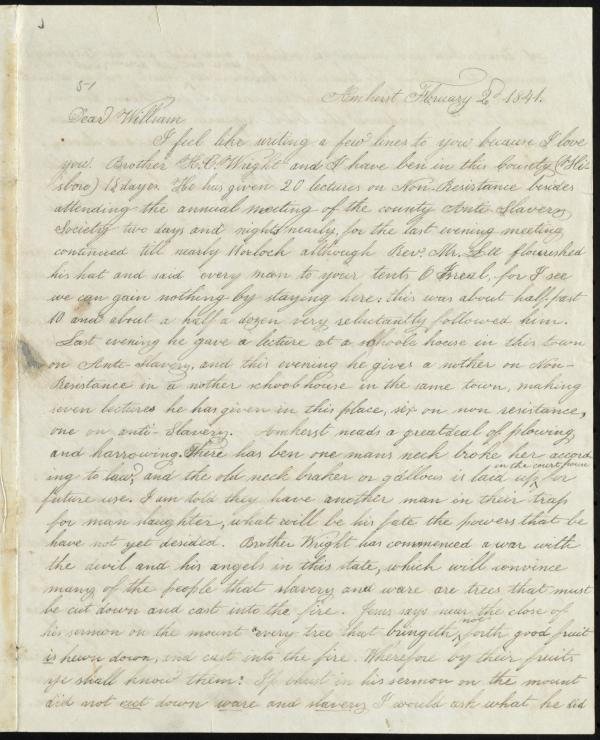 51
Amherst February 2d 1841.
Dear William
I feel like writing a few lines to you because I love
you. Brother H. C. Wright and I have ben in this County (Hils-
boro) 12 dayes. He has given 20 lectures on Non-Resistance besides
attending the annual meeting of the county Anti Slavery
Society two days and nights nearly, for the last evening meeting
continued till nearly 11 orloch although Rev. Mr. Lee flourished
his hat and said every man to your tents O Isreal, for I see
we can gain nothing by staying here, this was about half past
10 and about a half a dozen very reluctantly followed him.
Last evening he gave a lecture at a schoole house in this town
on Anti-Slavery, and this evening he gives a nother on Non-
Resistance in a nother schoolhouse in the same town, making
seven lectures he has given in this place, six on non resistance,
one on anti-Slavery. Amherst neads a great deal of plowing
and harrowing. There has ben one mans neck broke here accord
ing to law, and the old neck braker or gallows is laid up in the court house for
future use. I am told they have another man in their trap
for man slaughter, what will be his fate the powers that be
have not yet desided. Brother Wright has commenced a war with
the devil and his angels in this state, which will convince
many of the people that slavery and ware are trees that must
be cut down and cast into the fire. Jesus says near the close of
his sermon on the mount "every tree that bringeth not forth good fruit
is hewn down, and cast into the fire. Wherefore by their fruits
ye shall know them: If christ in his sermon on the mount
did not cut down ware and slavery I would ask what he did